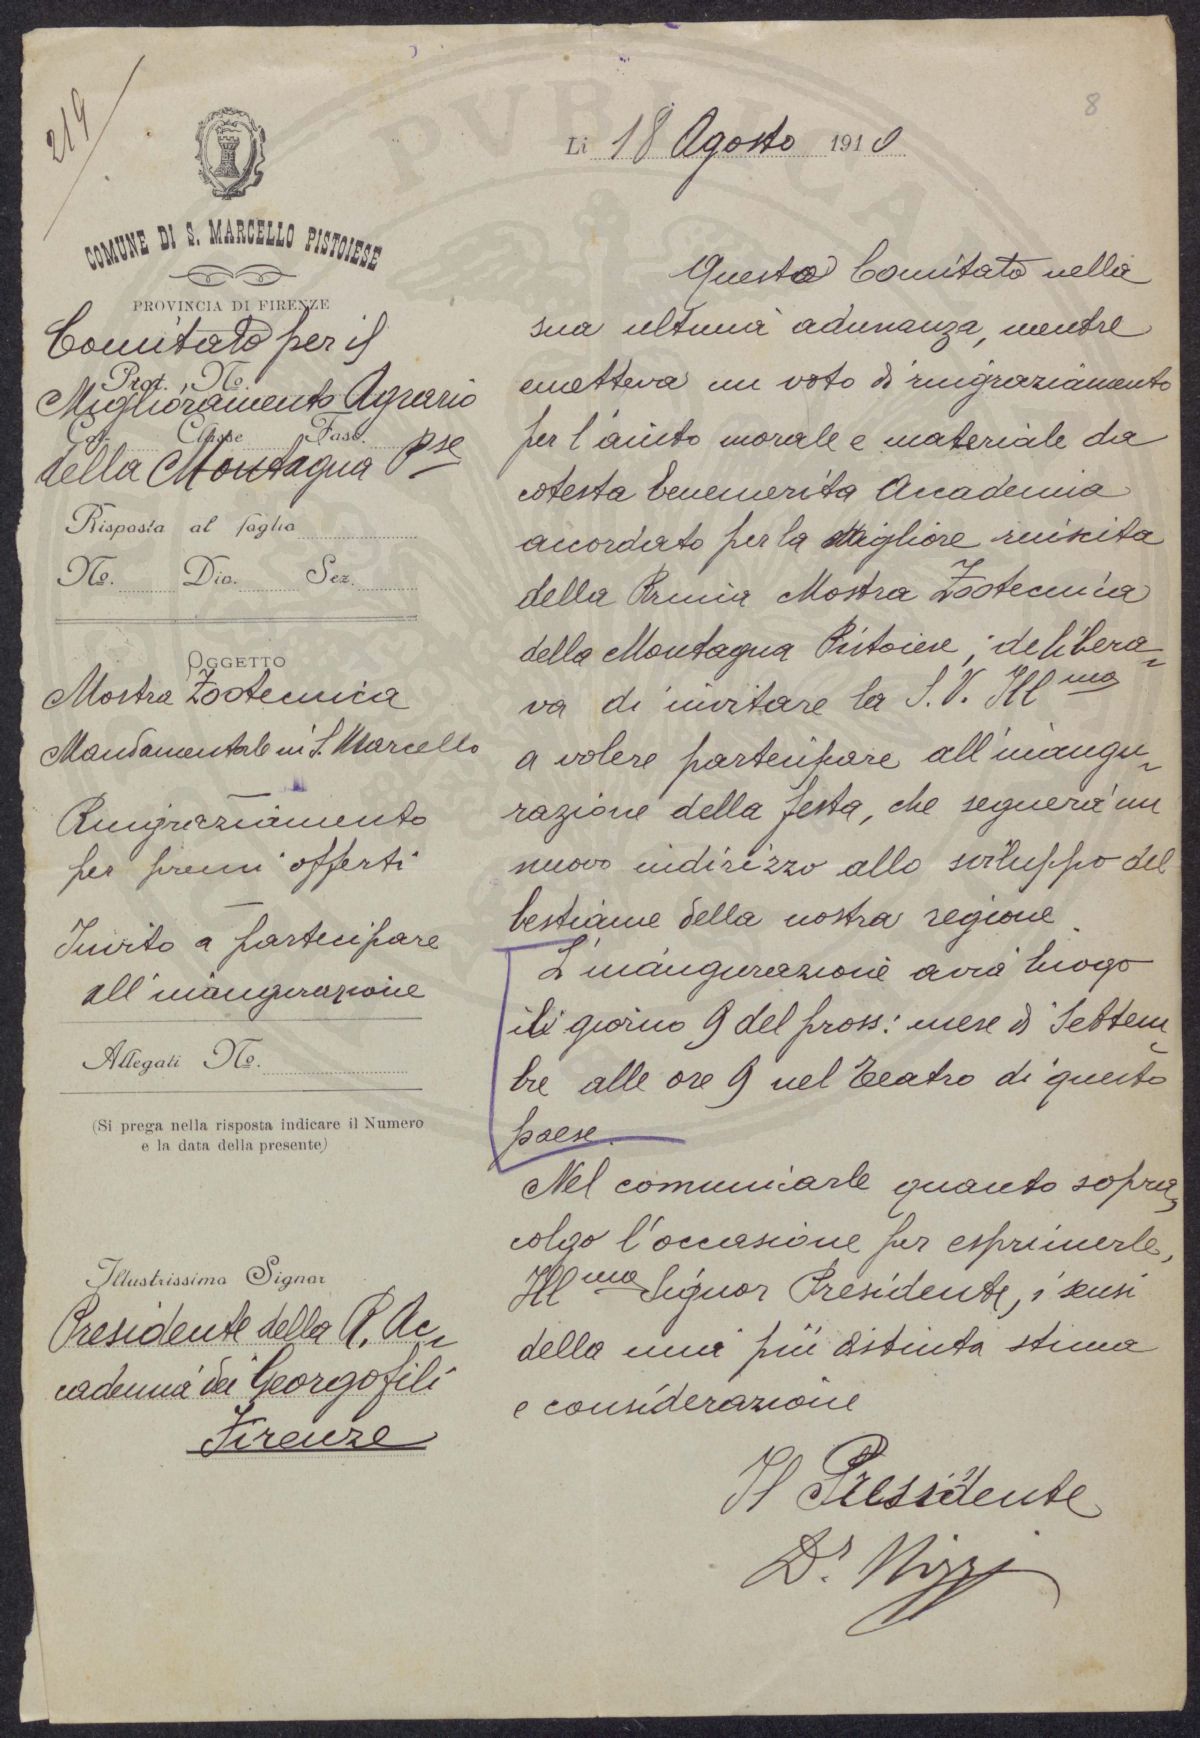 219
8
COMUNE DI S. MARCELLO PISTOIESE
PROVINCIA DI FIRENZE
Comitato per il
Prot. No.
Miglioramento Agrario
Cat. Classe Fasc.
della Montagna Pse
Risposta al foglio
No. Div. Sez.
OGGETTO
Mostra Zootecnica
Mandamentale in S. Marcello
Ringraziamento
per premi offerti
Invito a partecipare
all'inaugurazione
Allegati No.
(Si prega nella risposta indicare il Numero
e la data della presente)
Illustrissimo Signor
Presidente della R. Ac-
cademia dei Georgofili
Firenze
Li 18 Agosto 1910
Questo Comitato nella
sua ultima adunanza, mentre
emetteva un voto di ringraziamento
per l'aiuto morale e materiale da
cotesta benemerita Accademia
accordato per la migliore riuscita
della Prima Mostra Zootecnica
della Montagna Pistoiese, delibera-
va di invitare la S. V. Ill ma
a volere partecipare all'inaugu-
razione della festa, che segnerà un
nuovo indirizzo allo sviluppo del
bestiame della nostra regione.
L'inaugurazione avrà luogo
il giorno 9 del pross: mese di Settem-
bre alle ore 9 nel Teatro di questo
paese.
Nel comunicarle quanto sopra,
colgo l'occasione per esprimerle,
Ill mo Signor Presidente, i sensi
della mia più distinta stima
e considerazione
Il Presidente
Dr.
PVBLICA